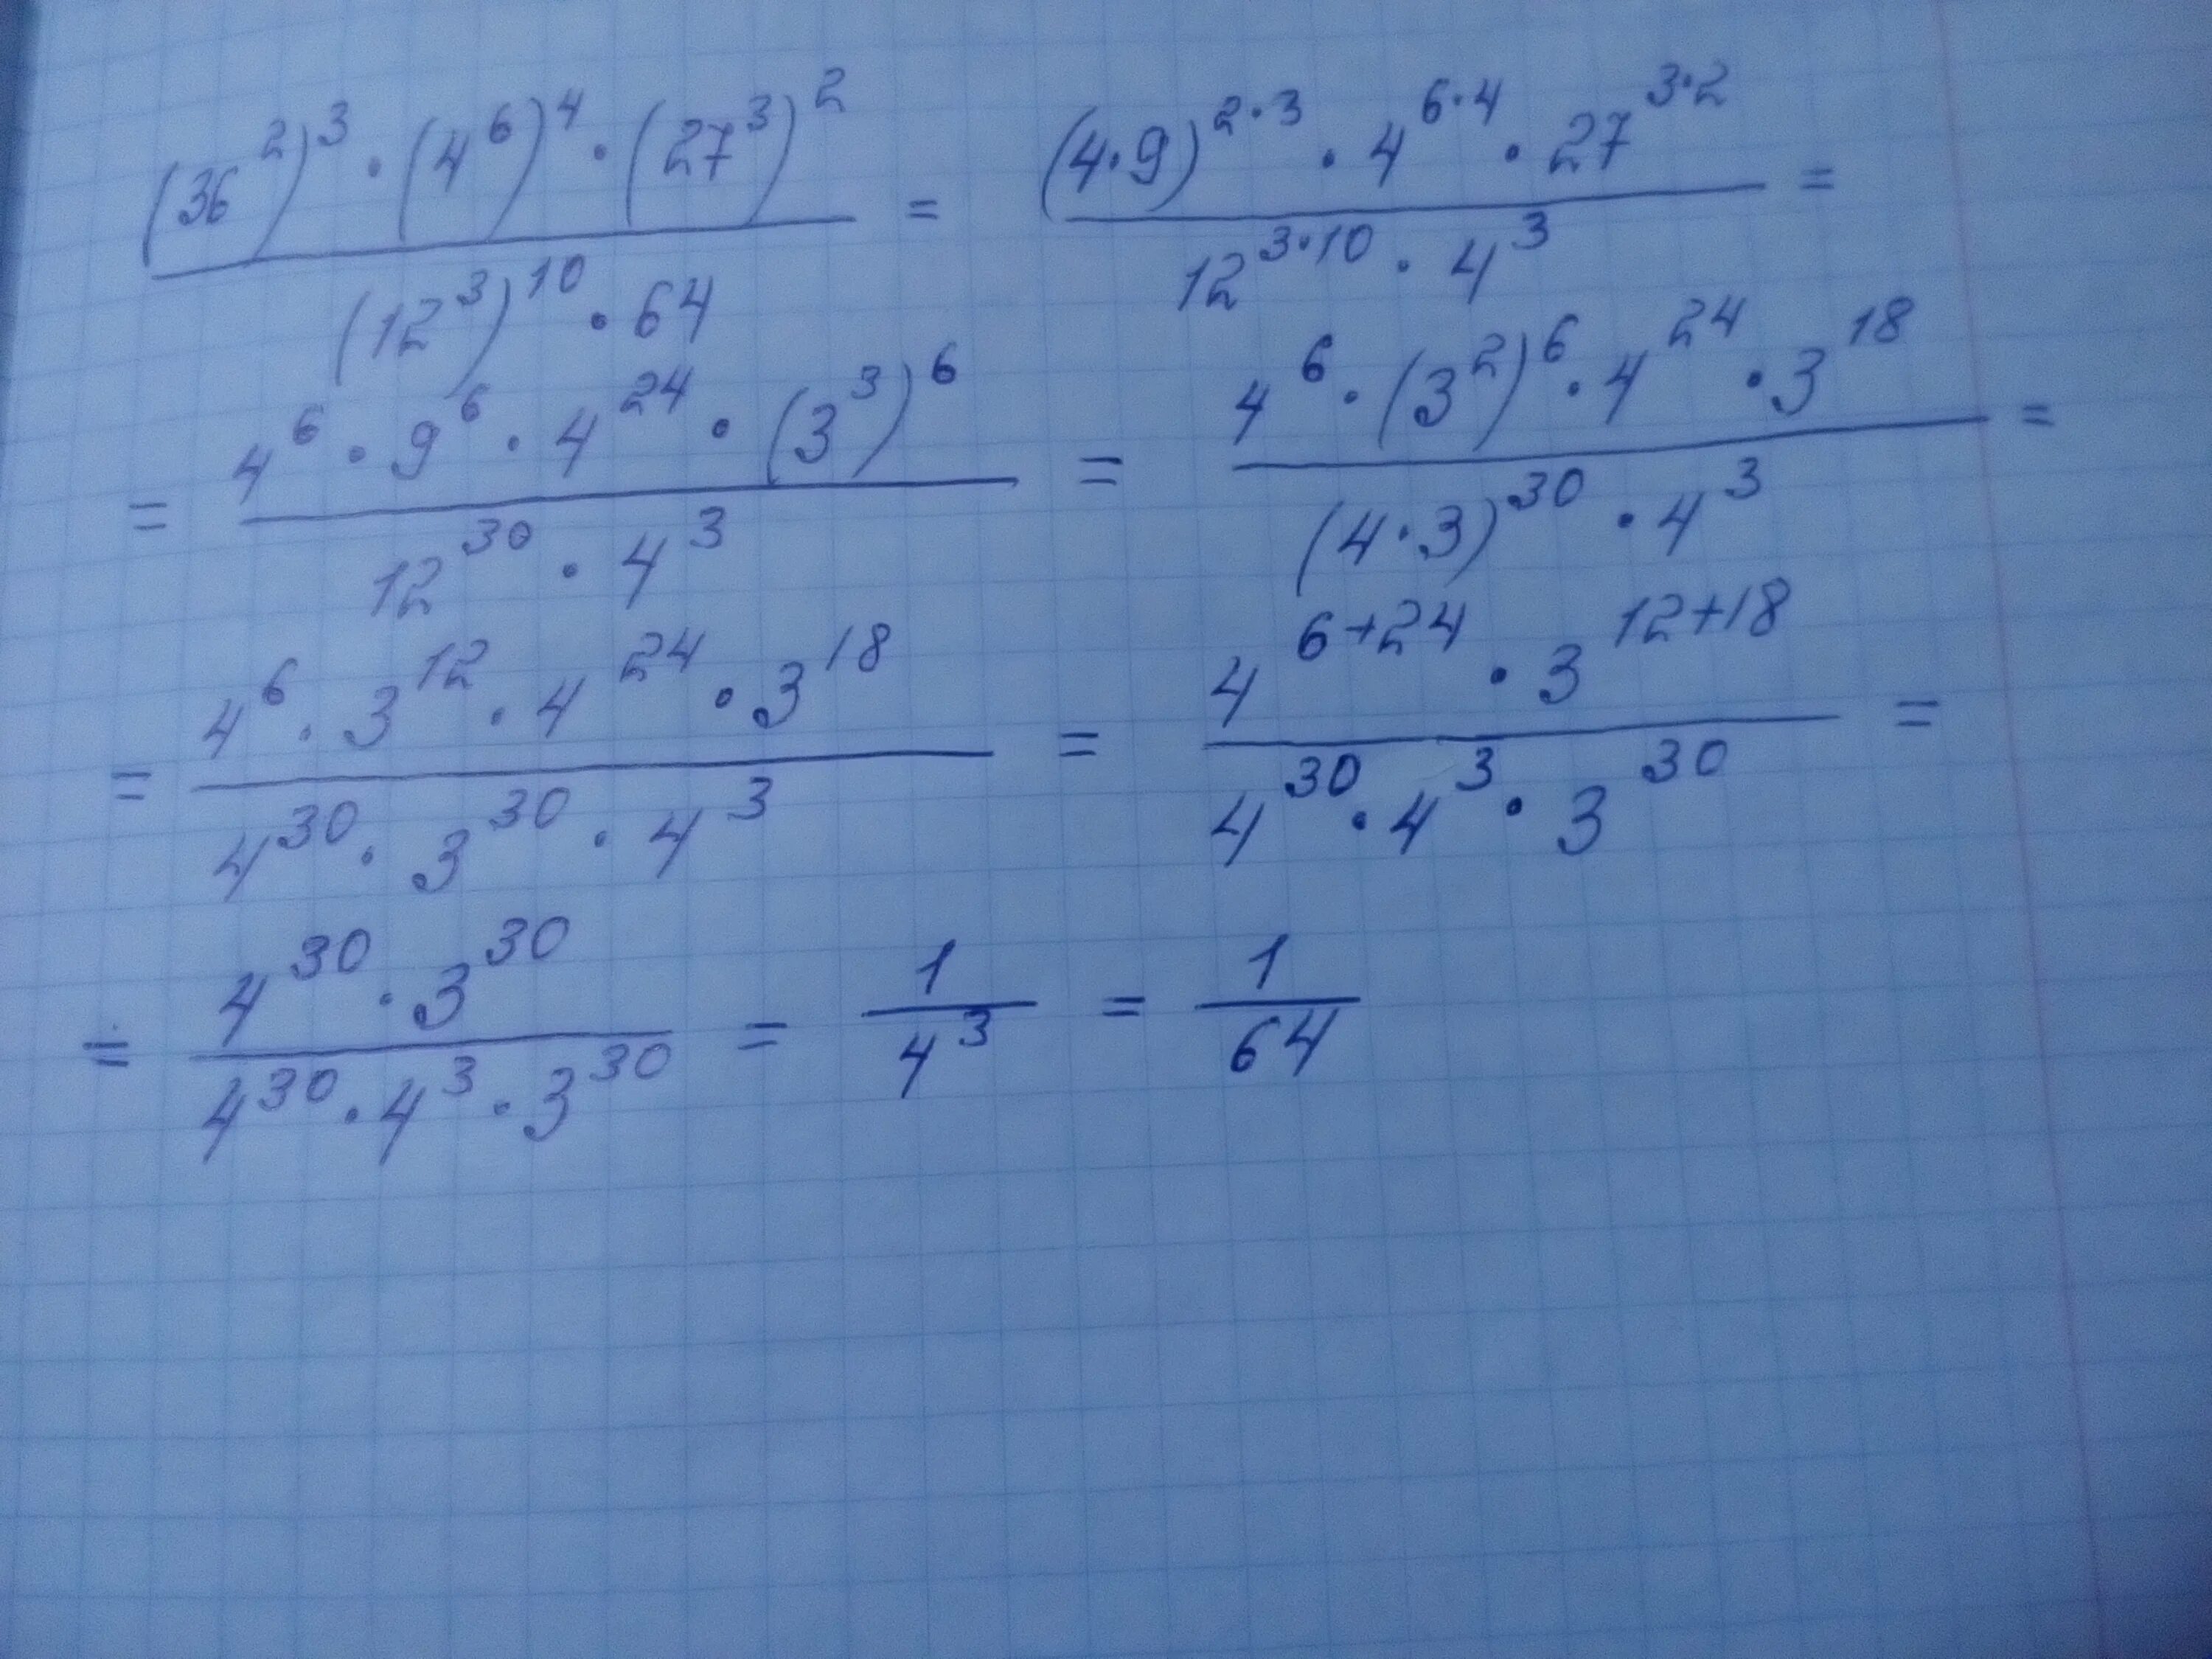 (36²)³ · (4⁶)⁴ · (27³)² / (12³)¹⁰ · 64 = (4·9)²·³ · 4⁶·⁴ · 27³·² / 12³·¹⁰ · 4³ =
= 4⁶ · 9⁶ · 4²⁴ · (3³)⁶ / 12³⁰ · 4³ = 4⁶ · (3²)⁶ · 4²⁴ · 3¹⁸ / (4·3)³⁰ · 4³ =
= 4⁶ · 3¹² · 4²⁴ · 3¹⁸ / 4³⁰ · 3³⁰ · 4³ = 4⁶⁺²⁴ · 3¹²⁺¹⁸ / 4³⁰ · 4³ · 3³⁰ =
= 4³⁰ · 3³⁰ / 4³⁰ · 4³ · 3³⁰ = 1 / 4³ = 1 / 64